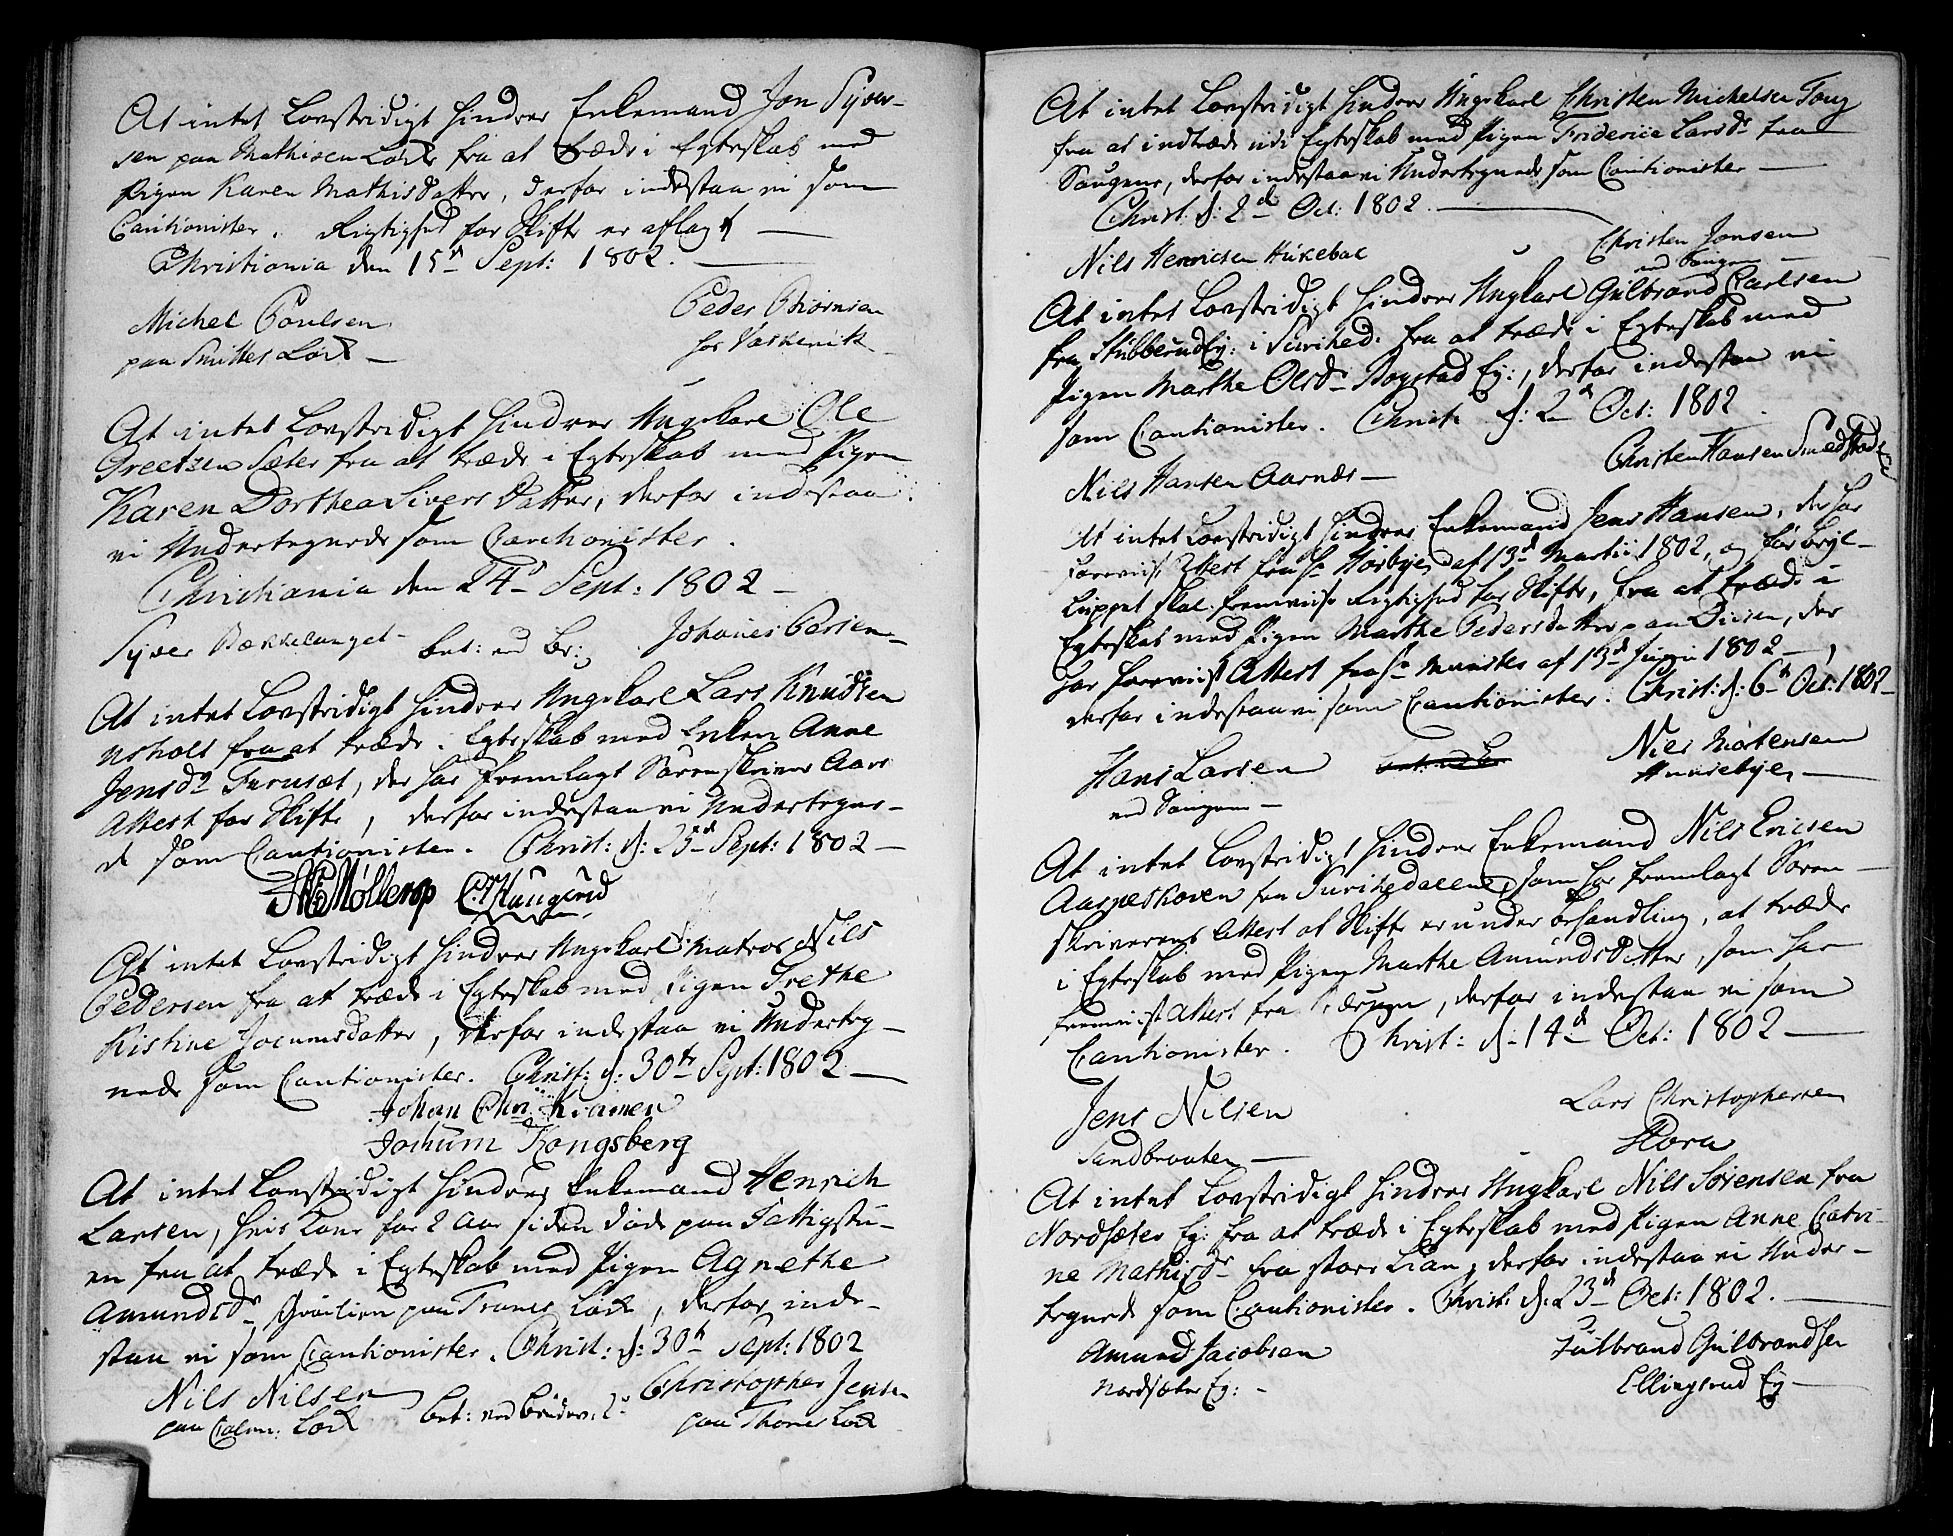 At intet Lovstridigt hindrer Enkemand Jon Syver-
sen paa Mathisen Løck fra at træde i Egteskab med
Pigen Karen Mathisdatter, derfor indestaa vi som
Cautionister. Rigtighed for Skifte er aflagt
Christiania den 15de Sept: 1802.
Michel Poulsen Peder Biørnsen
paa Smittes Løck
At intet Lovstridigt hindrer Ungekarl Ole
Greetsen Sæter fra at træde i Egteskab med Pigen
Karen Dorthea Sivers Datter, derfor indestaa
vi Undertegnede som Cautionister.
Christiania den 24de Sept: 1802
Syver Bækkelanget bet: ved Br: Johanes Persen
At intet Lovstridigt hindrer Ungekarl Lars Knudsen
fra at træde i Egteskab med Enken Anne
Jensdr Furusæt, der har fremlagt Sorenskriver Aars
Attest for Skifte, derfor indestaa vi Undertegne-
de som Cautionister. Christ: d: 25de Sept: 1802
Møllerop Haugerud
At intet Lovstridigt hindrer Ungekarl Matros Nils
Pedersen fra at træde i Egteskab med Pigen Grethe
Kistine Jocumsdatter, derfor indestaa vi Underteg-
nede som Cautionister. Christ: d: 30te Sept: 1802
Johan Chr: Kramer
Jochum Kongsberg
At intet Lovstridigt hindrer Enkemand Henrich
Larsen, hvis Kone for 2 Aar siden døde paa Fattigstu-
en fra at træde i Egteskab med Pigen Agnethe
Amundsdr paa Tranes Løck, derfor inde-
staa vi som Cautionister. Christ: d: 30te Sept: 1802
Nils Nilsen bet: ved Christopher Jensen
paa Løck paa Thones Løck
At intet Lovstridigt hindrer Ungekarl Christen Michelsen Toug
fra at indtræde udi Egteskab med Pigen Friderica Larsdr fra
Saugene, derfor indestaa vi Undertegnede som Cautionister
Christ: d: 2de Oct: 1802.
Nils Henricsen Hukebae Christen Jonsen
ved Saugene
At intet Lovstridigt hindrer Ungkarl Gulbrand Carlsen
fra Stubberud Ej: i Surkhed. fra at træde i Egteskab med
Pigen Marthe Olsdr Bogstad Ej:, derfor indestaa vi
som Cautionister. Christ: d: 2de Oct: 1802
Nils Hansen Aarnæs Christen Hansen Smedstad Eje
At intet Lovstridigt hindrer Enkemand Jens Hansen, der har
foreviist Attest fra Hr Hørbye af 13de Martii 1802, og før Bryl-
luppet skal fremviise Rigtighed for Skifte, fra at træde i
Egteskab med Pigen Marthe Pedersdatter paa Disen, der
har foreviist Attest fra Hr Munster af 13de Junii 1802,
derfor indestaa vi som Cautionister. Christ: d: 6te Oct: 1802
Hans Larsen Niels Mortensen
ved Saugene
At intet Lovstridigt hindrer Enkemand Nils Ericsen
Aspeskoven fra Surkedalen, som har fremlagt Soren-
skriverens Attest at Skifte er under behandling, at træde
i Egteskab med Pigen Marthe Amundsdatter, som har
fremviist Attest fra Bærum, derfor indestaa vi som
Cautionister. Christ: d: 14de Oct: 1802
Jens Nilsen Lars Christophersen
Sandbraaten Flora
At intet Lovstridigt hindrer Ungkarl Nils Sørensen fra
Nordsæter Ej: fra at træde i Egteskab med Pigen Anne Catri-
ne Mathisdr fra store Lian, derfor indestaa vi Under-
tegnede som Cautionister. Christ: d: 23de Oct: 1802.
Amund Jacobsen Gulbrand Gulbrandsen
Nordsæter Ej: Ellingsrud Ej